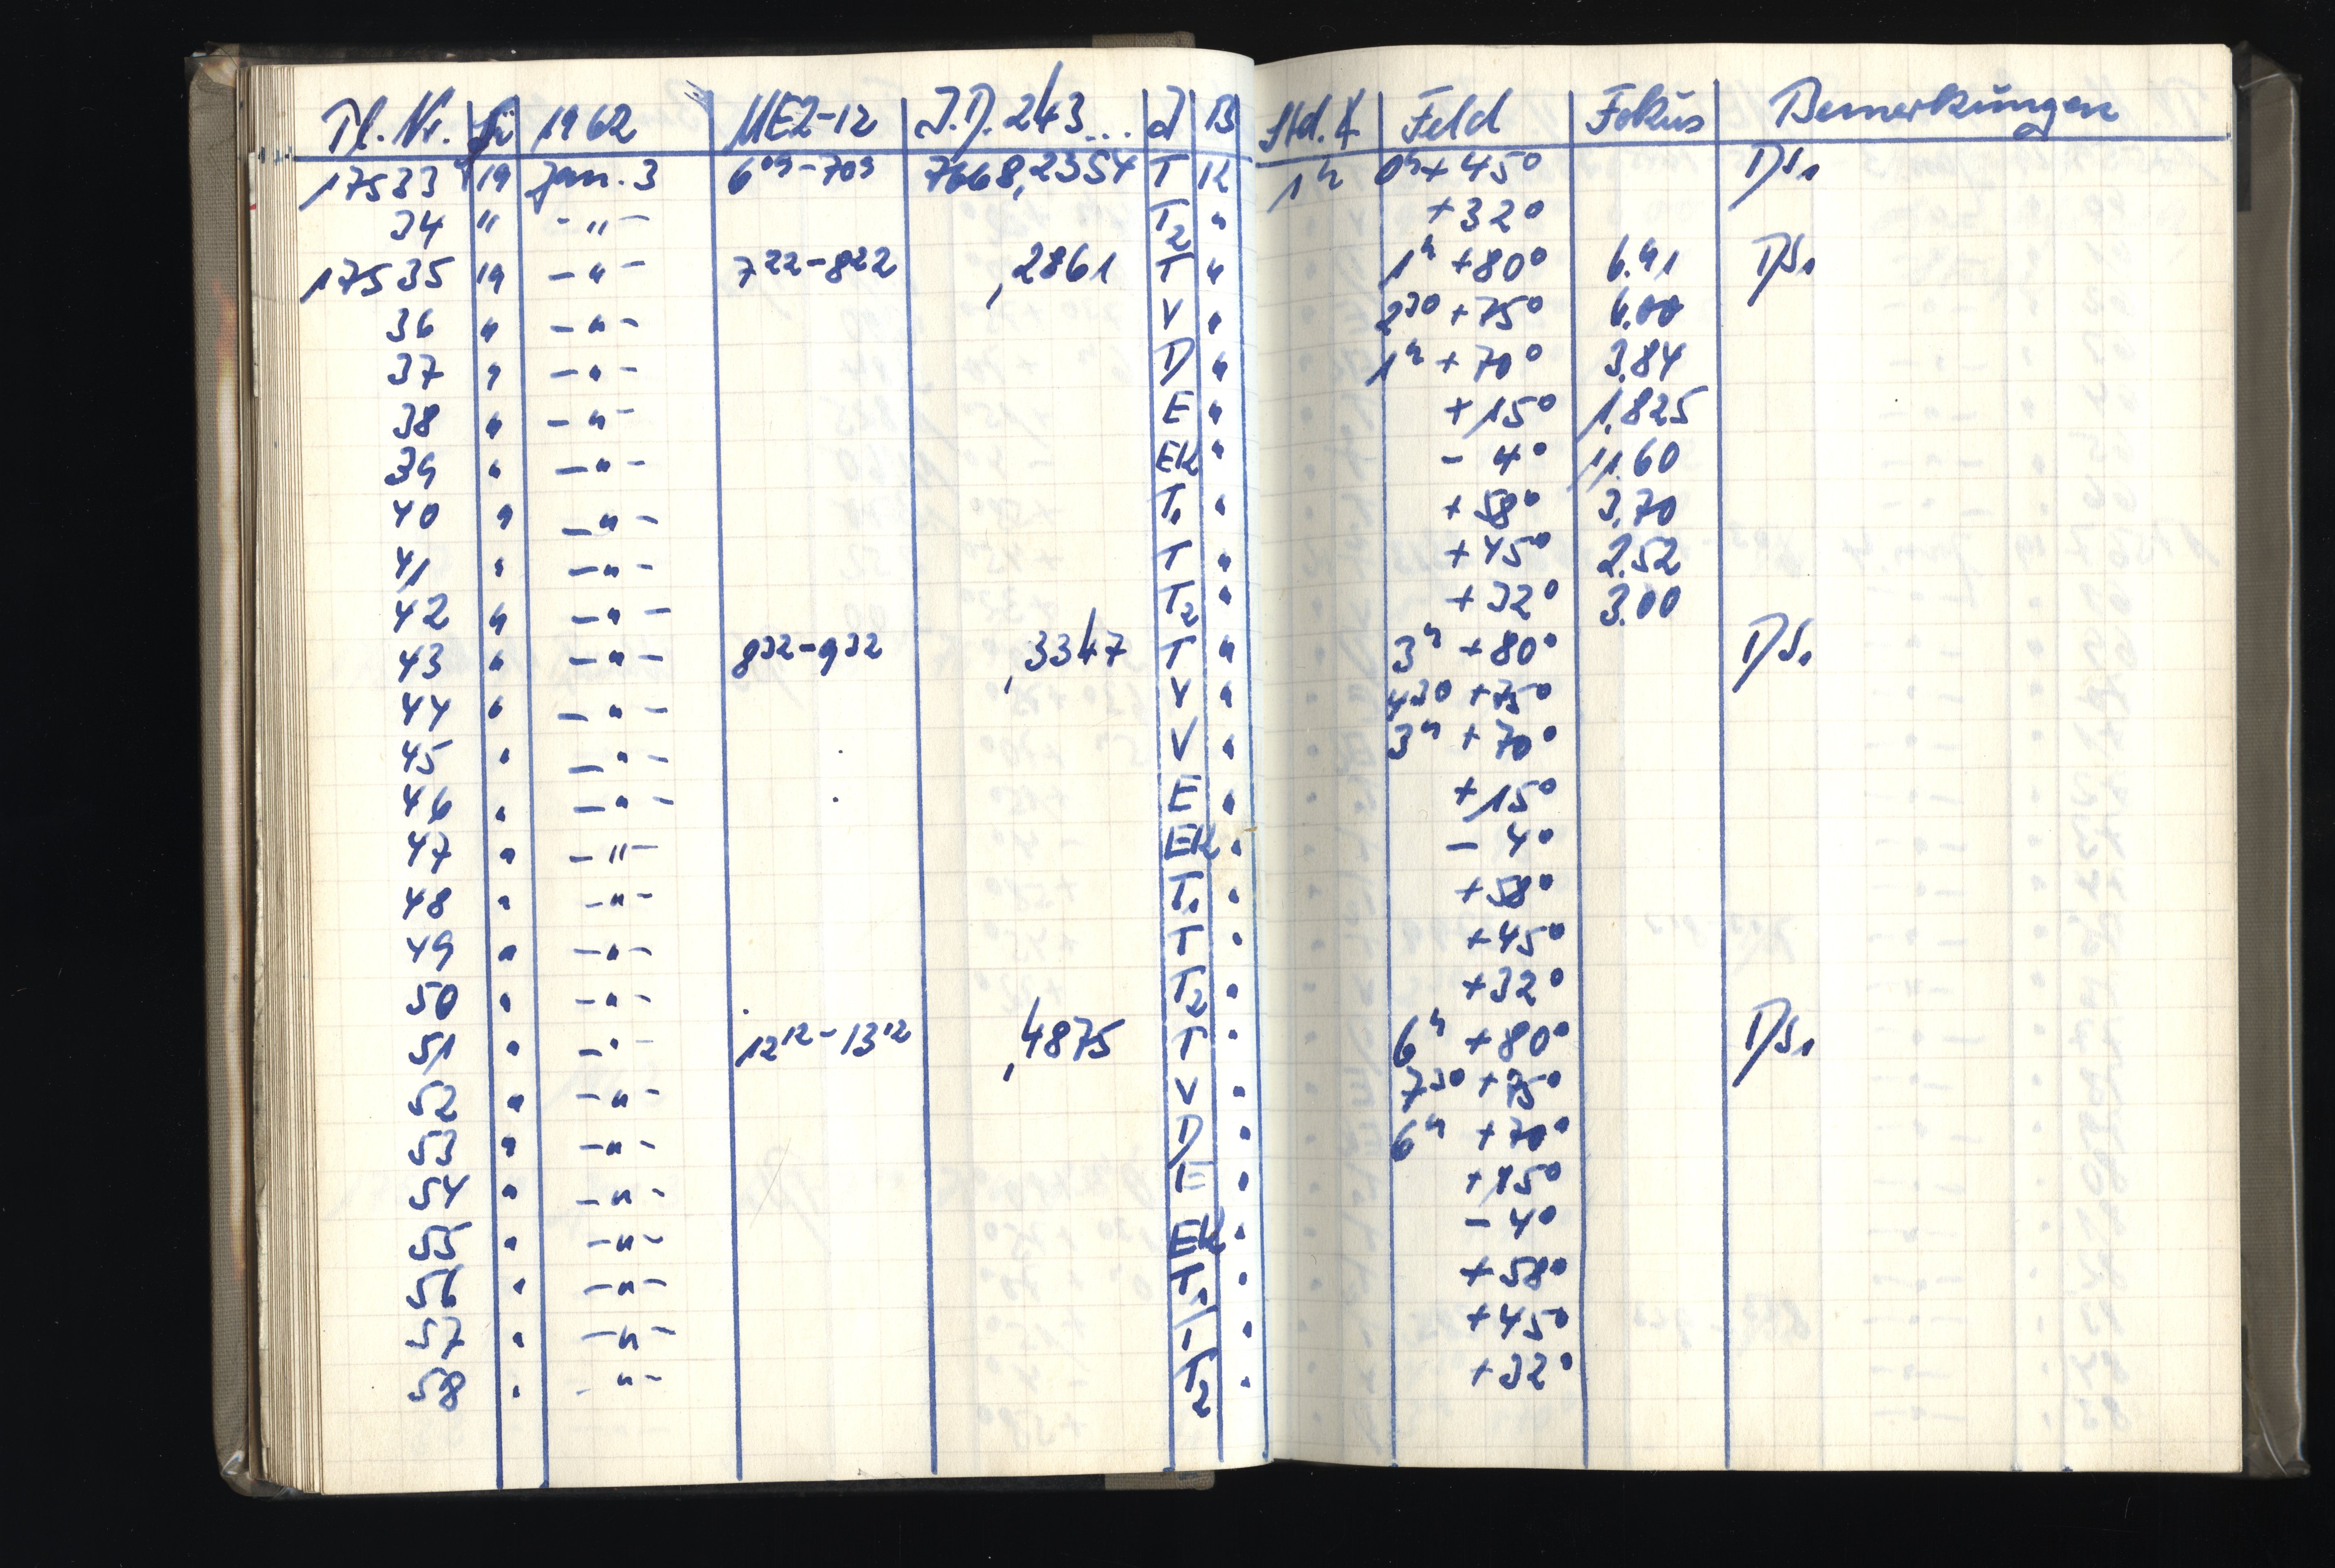 Pl. Nr. 1962 MEZ-12 J.D. 243... J B Std. ∢ Feld Fokus Bemerkungen
17533 19 Jan. 3 6⁰⁹-7⁰⁹ 7668,2354 T 12 1ʰ 0ʰ+45° DS₁
34 " -"- T₂ " +32°
17535 19 -"- 7²²-8²² ,2861 T " 1ʰ +80° 6.41 DS₁
36 " -"- V " 2³⁰ +75°
37 " -"- D " 1ʰ +70° 3.84
38 " -"- E " +15° 1.825
39 " -"- EK " - 4° 11.60
40 " -"- T₁ " +58° 3.70
41 " -"- T " +45° 2.52
42 " -"- T₂ " +32° 3.00
43 " -"- 8³²-9³² ,3347 T " 3ʰ +80° DS₁
44 " -"- V " 4³⁰ +75°
45 " -"- V " 3ʰ +70°
46 " -"- E " +15°
47 " -"- EK " - 4°
48 " -"- T₁ " +58°
49 " -"- T " +45°
50 " -"- T₂ " +32°
51 " -"- 12¹²-13¹² ,4875 T " 6ʰ +80° DS₁
52 " -"- V " 7³⁰ +75°
53 " -"- D " 6ʰ +70°
54 " -"- E " +15°
55 " -"- EK " - 4°
56 " -"- T₁ " +58°
57 " -"- T " +45°
58 " -"- T₂ " +32°